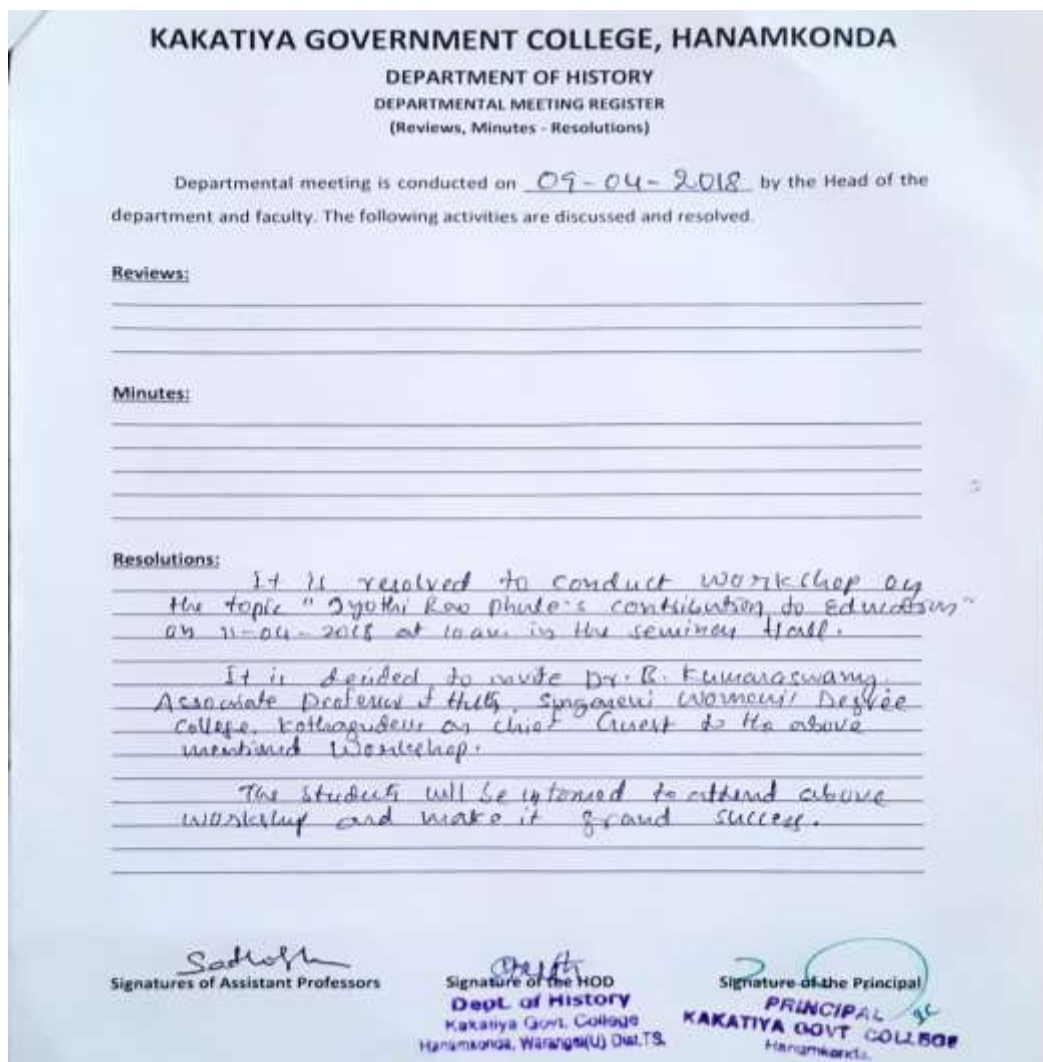 KAKATIYA GOVERNMENT COLLEGE, HANAMKONDA
DEPARTMENT OF HISTORY
DEPARTMENTAL MEETING REGISTER
(Reviews, Minutes - Resolutions)
Departmental meeting is conducted on 09-04-2018 by the Head of the
department and faculty. The following activities are discussed and resolved.
Reviews:
Minutes:
Resolutions:
It is resolved to conduct workshop on
the topic "Jyothi Rao Phule's contribution to Education"
on 11-04-2018 at 10 am in the seminar Hall.
It is decided to invite Dr. B. Kumaraswamy
Associate Professor of Singareni Women's Degree
college, Kothagudem as chief Guest to the above
mentioned Workshop.
The students will be informed to attend above
workshop and make it grand success.
Signatures of Assistant Professors
Signature of the HOD
Dept. of History
Kakatiya Govt. College
Hanamkonda, Warangal(U) Dist.TS.
Signature of the Principal
PRINCIPAL
KAKATIYA GOVT COLLEGE
Hanamkonda.